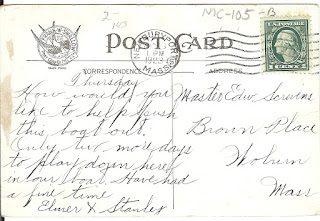 2
MC-105-B
POST CARD
NEWBURYPORT
PM
MASS.
U.S. POSTAGE
1 CENT 1
CORRESPONDENCE
ADDRESS
Thursday
How would you
like to help push
this boat out.
Only two more days
to play down here
in our boat. Have had
a fine time
Elmer & Stanley
Master Edw.
Brown Place
Woburn
Mass